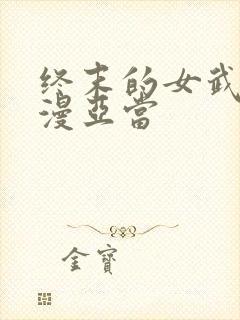 终末的女武
漫亞當
金寶